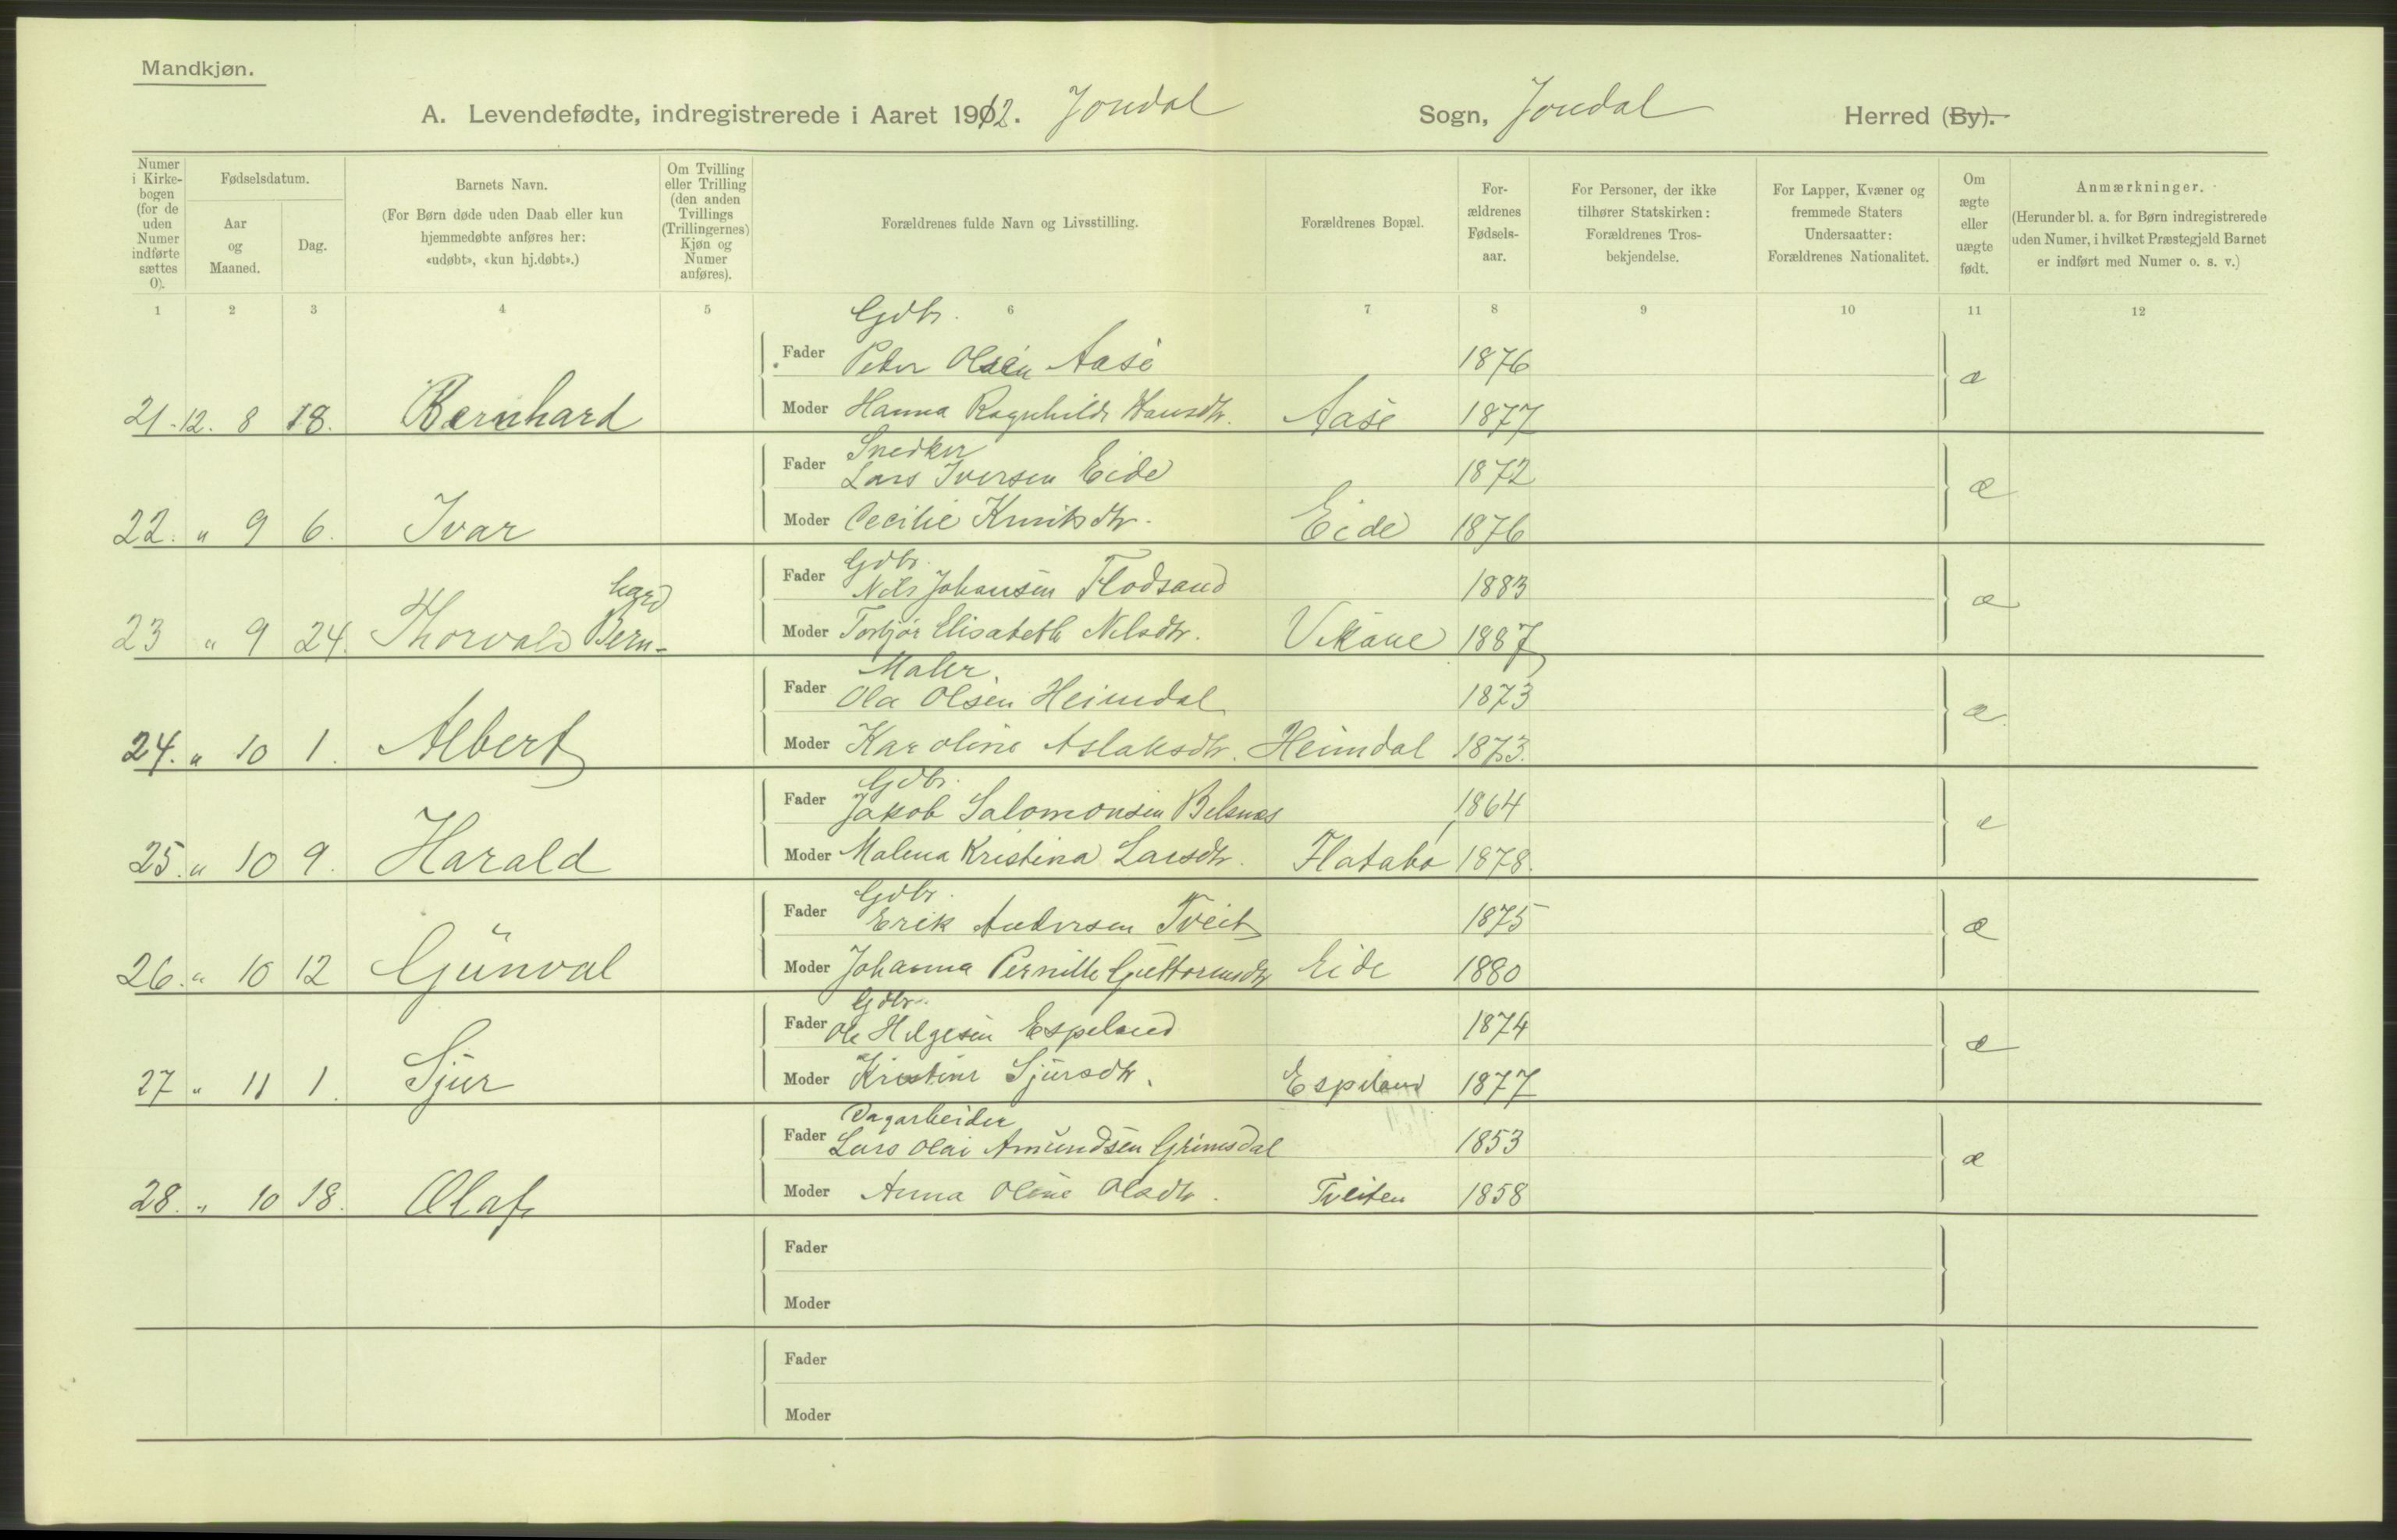 Mandkjøn.
A. Levendefødte, indregistrerede i Aaret 1912. Jondal Sogn, Jondal Herred (By).
Numer i Kirkebogen (for de uden Numer indførte sættes 0).
Fødselsdatum.
Aar og Maaned.
Dag.
Barnets Navn.
(For Børn døde uden Daab eller kun hjemmedøbte anføres her: «udøbt», «kun hj.døbt».)
Om Tvilling eller Trilling (den anden Tvillings (Trillingernes) Kjøn og Numer anføres).
Forældrenes fulde Navn og Livsstilling.
Forældrenes Bopæl.
Forældrenes Fødselsaar.
For Personer, der ikke tilhører Statskirken: Forældrenes Trosbekjendelse.
For Lapper, Kvæner og fremmede Staters Undersaatter: Forældrenes Nationalitet.
Om ægte eller uægte født.
Anmærkninger.
(Herunder bl. a. for Børn indregistrerede uden Numer, i hvilket Præstegjeld Barnet er indført med Numer o. s. v.)
1 2 3 4 5 6 7 8 9 10 11 12
Gdbr.
Fader Peder Olsen Aase 1876
21. 12. 8 18. Bernhard Moder Hanna Ragnhilds Hansdtr. Aase 1877 æ
Snedker
Fader Lars Iversen Eide 1872
22. " 9 6. Ivar Moder Cecilie Knutsdtr. Eide 1876 æ
Gdbr.
Fader Nils Johansen Flodsand 1883
23 " 9 24. Thorvald Bern-hard Moder Torbjør Elisabeth Nilsdtr. Vikane 1887 æ
Maler
Fader Ola Olsen Heimdal 1873
24. " 10 1. Albert Moder Karoline Aslaksdtr. Heimdal 1873. æ
Gdbr.
Fader Jakob Salomonsen Belsnæs 1864
25. " 10 9. Harald Moder Malena Kristina Larsdtr. Flatabø 1878. æ
Gdbr.
Fader Erik Andersen Tveit 1875
26. " 10 12 Gunval Moder Johanna Pernille Guttormsdtr Eide 1880 æ
Gdbr.
Fader Ole Helgesen Espeland 1874
27 " 11 1. Sjur Moder Kristine Sjursdtr. Espeland 1877 æ
Dagarbeider
Fader Lars Olai Amundsen Grimsdal 1853
28. " 10 18. Olaf Moder Anna Oline Olsdtr. Tveiten 1858 æ
Fader
Moder
Fader
Moder